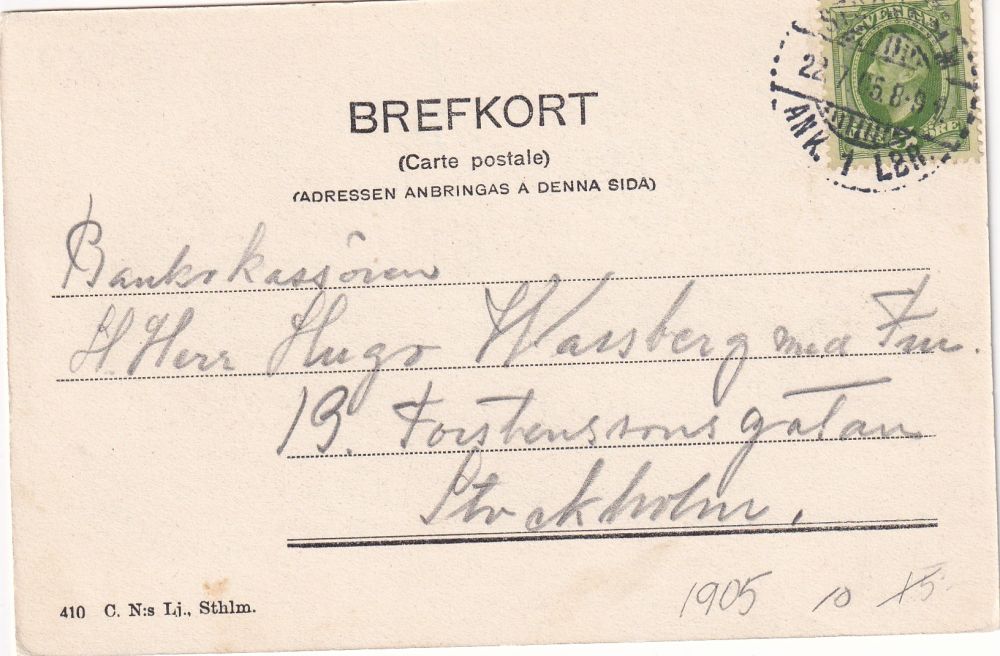 BREFKORT
(Carte postale)
(ADRESSEN ANBRINGAS Å DENNA SIDA)
22 7 05 8-9
ANK. 1 LBR.
ÖRE
Bankokassören
H. Herr Hugo Wassberg med Fru.
13. Torstenssonsgatan
Stockholm.
410 C. N:s Lj., Sthlm.
1905 10